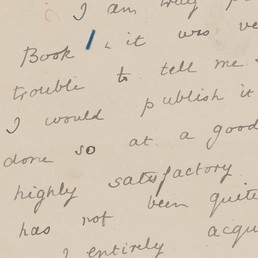 I am truly p
Book, it was ve
trouble to tell me
I would publish it
done so at a good
highly satisfactory
has not been quite
I entirely acqu